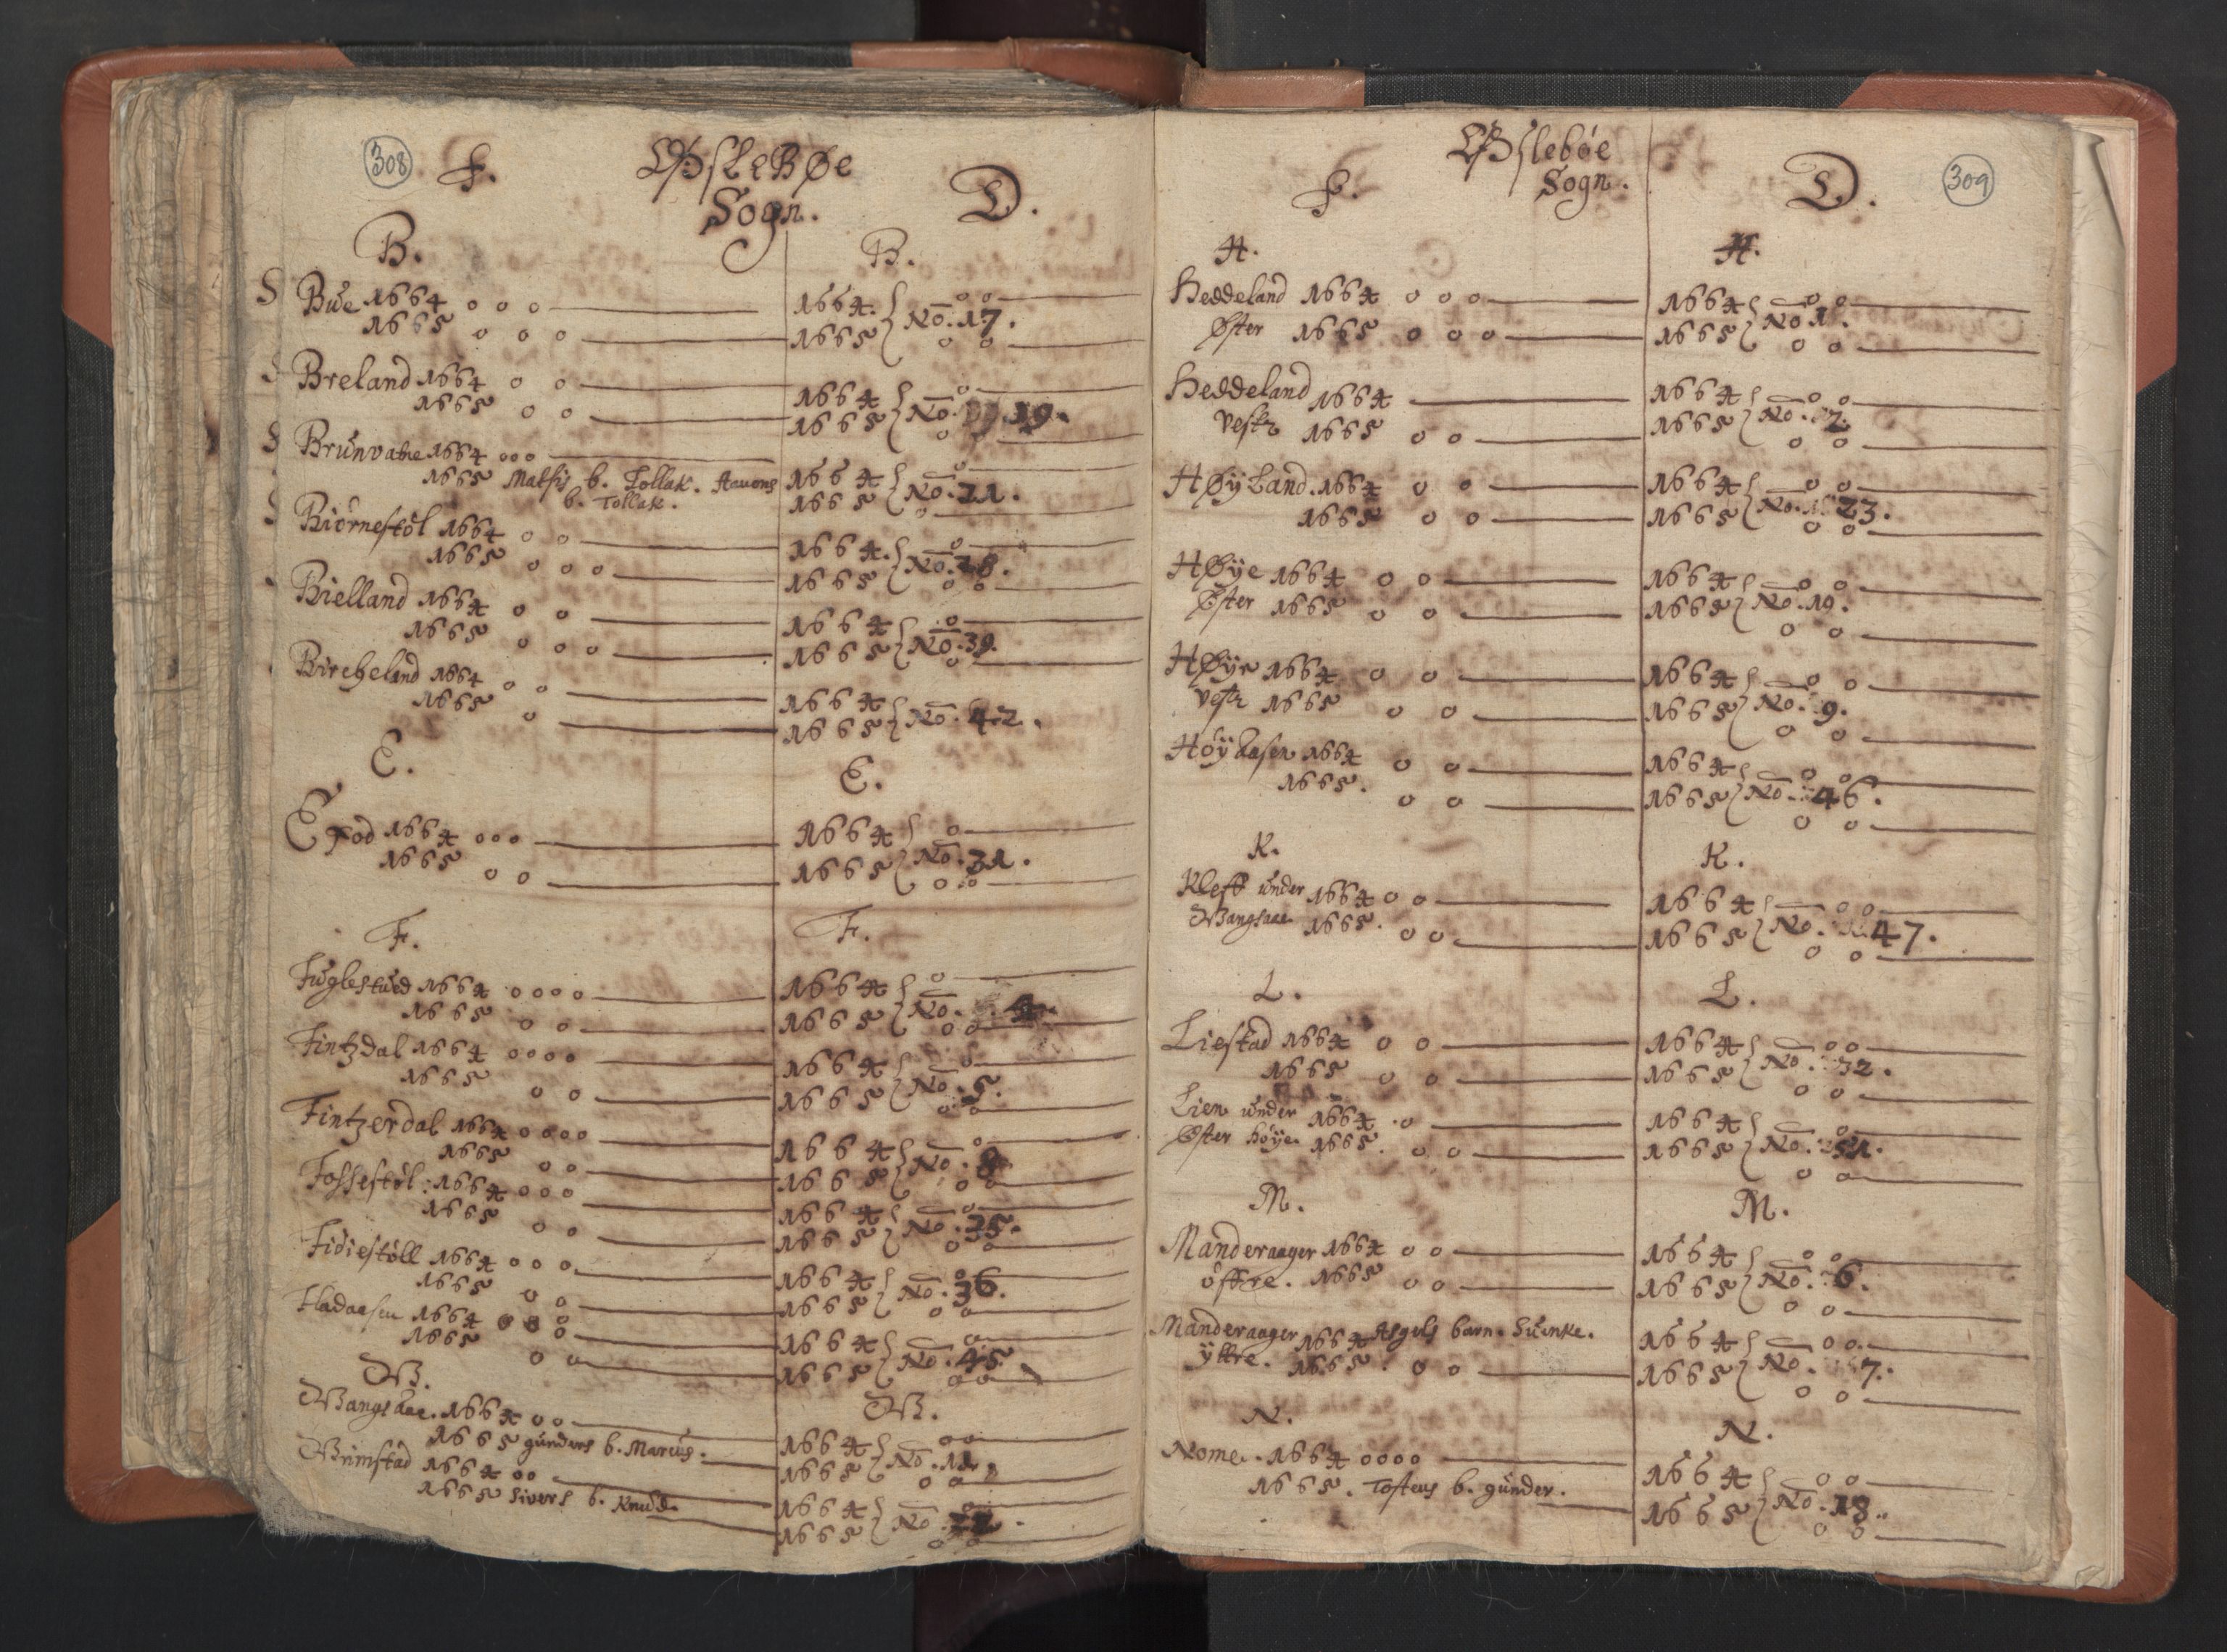 308
F. ØfsleBøe D.
Sogn.
B. B.
S Bue 1664 o o o 1664. o o
1665 o o o 1665 No. 17. o o
Breland 1664 o o 1664 o
1665 o o 1665 No. 19. o o
Brunvatne 1664 o o o 1664 o
1665 Matsis b. Tollak. Aavons 1665 No. 21. o
b. Tollak.
Biórnestól 1664 o o 1664. o
1665 o o o 1665 No. 28. o o
Bielland 1664 o o 1664 o
1665 o o o 1665 No. 39. o
Bircheland 1664 o o 1664
1665 o 1665 No. 42.
E. E.
Efod 1664 o o o 1664 o
1665 o o 1665 No. 31. o o
F. F.
Fuglestued 1664 o o o o 1664 o
1665 o o 1665 No. 4. o o
Fintzdal 1664 o o o o 1664 o
1665 o o 1665 No. 5. o o
Fintzerdal 1664 o o o o 1664 o
1665 o o 1665 No. 8 o o
Fossestól: 1664 o o o 1664 o
1665 o o 1665 No. 35. o o
Fidiestóll 1664 o o o 1664 o
1665 o o 1665 No. 36. o o
Fladaasen 1664 o o o 1664 o o
1665 o o 1665 No. 45. o o
W. W.
Wangsaae. 1664 o o 1664 o o
1665 gunders b. Marcus. 1665 No. o o
Grimstad 1664 o o 1664 o o
1665 Sivers b. Knud. 1665 No. o o
309
F. Øfslebóe D.
Sogn.
H. H.
Heddeland 1664 o o o 1664 o o
Øster 1665 o o o 1665 No 1. o o
Heddeland 1664 1664 o o
Vestr 1665 o o 1665 No. 2. o o
HøyLand. 1664 o o 1664 o o
1665 o o 1665 No. 23. o o
Høye 1664 o o 1664 o o
Øster 1665 o o 1665 No. 19. o o
Høye 1664 o o 1664 o o
Vestr 1665 o o 1665 No. 9. o o
Hóyaasen 1664 o o 1664 o o
1665. o o 1665 No. 46. o o
K. K.
Kleff under 1664 o o 1664 o o
Wangsaae 1665. o o 1665 No. 47. o o
L. L.
Liestad 1664 o o 1664 o o
1665 o o 1665 No. 32. o o
Lien under 1664 o 1664 o
Øster hóye. 1665. o o 1665 No. 51. o o
M. M.
Manderaager 1664 o o 1664 o o
óffre. 1665 o o 1665 No. 6. o o
Manderaager 1664 Asgels barn. Suenke. 1664 o o
ÿttre. 1665. o o 1665 No. 7. o o
N. N.
Nome. 1664 o o o o 1664 o o
1665. Tostens b. gunder. 1665 No. 18. o o